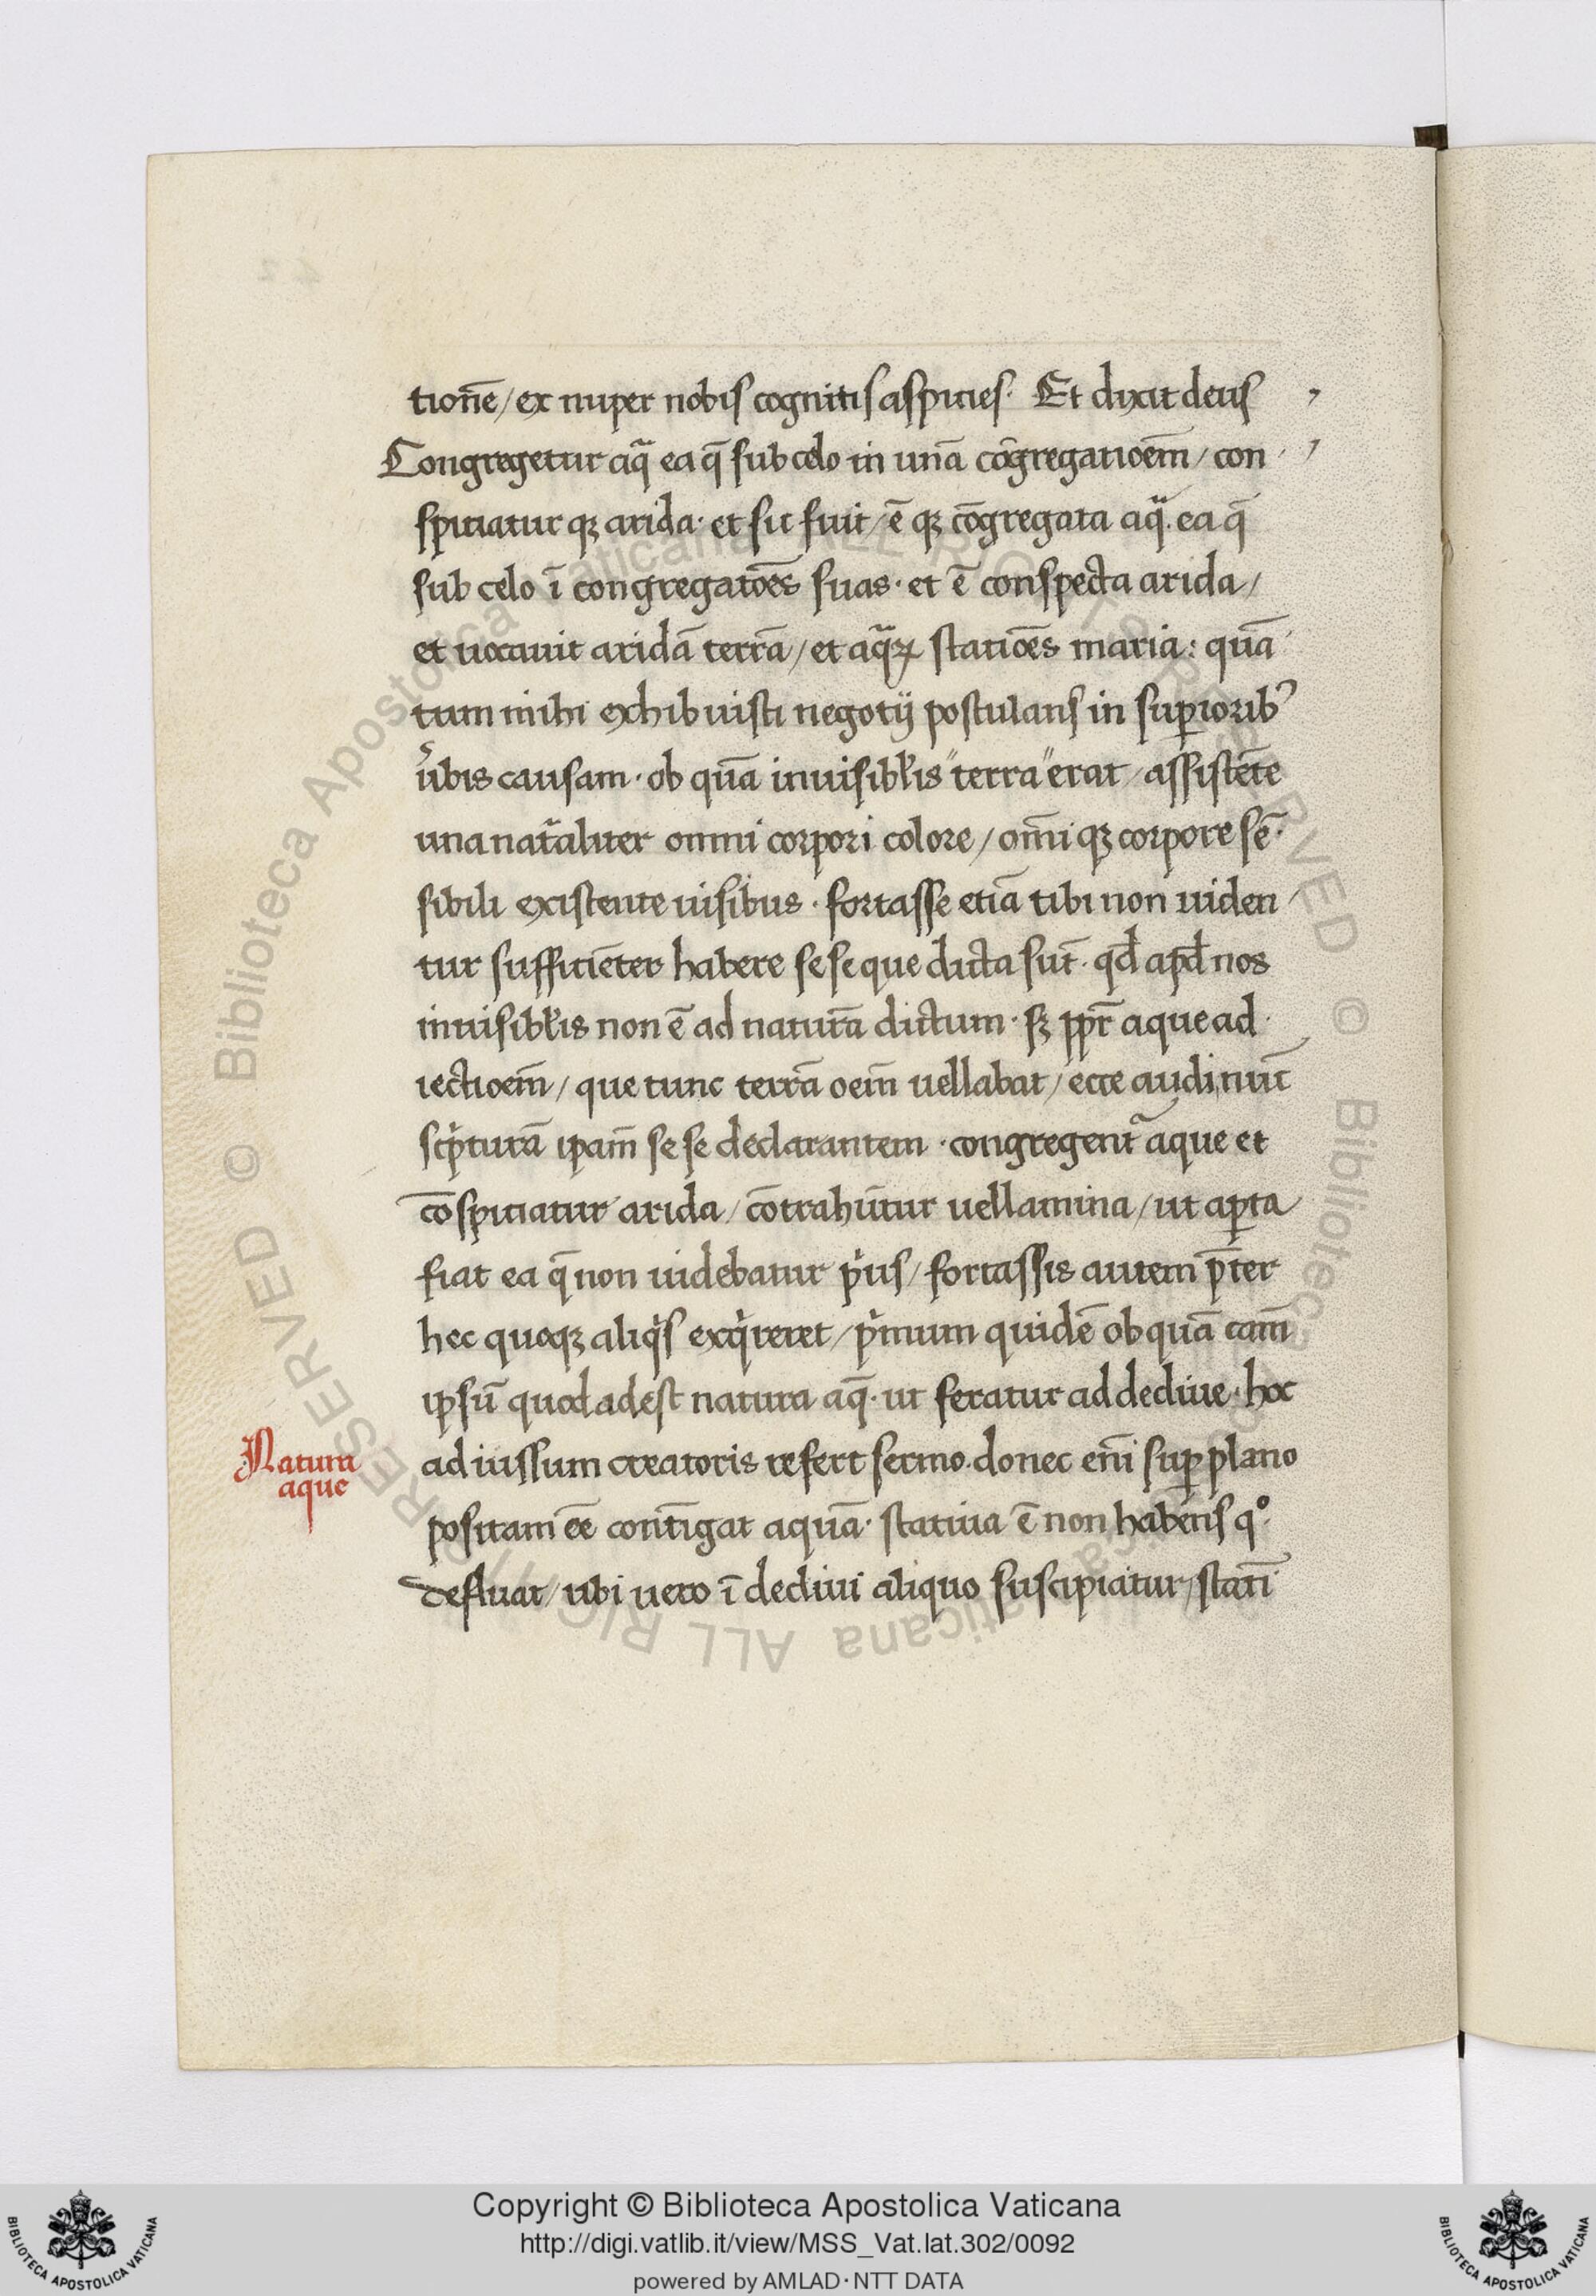 tionē / ex nuper nobis cognitis aspicies. Et dixit deus
Congregetur aqᷓ ea q̄ sub celo in unā cōgregatioēm / con
spiciatur qꝫ arida· et sic fuit / ē qꝫ cōgregata aqᷓ. ea q̄
sub celo ī congregatōēs suas· et ē conspecta arida /
et uocauit aridā terrā / et aqᷓꝝ statiōēs maria: quā
tum mihi exhibuisti negotij postulans in superiorib᾽
u̓bis causam· ob quā inuisibl̓is "terra" erat / assistēte
una nat᷑aliter omni corpori colore / om̄i qꝫ corpore sē
sibili existente uisibus· fortasse etiā tibi non uiden
tur sufficiēter habere sese que dicta sūt· qd̄ apd̄ nos
inuisibl̓is non ē ad naturā dictum· sꝫ ꝓpt̄ aque ad
iectioem̄ / que tunc terrā oem̄ uellabat / ecce audi nūc
scͥpturā ip̄am se se declarantem· congregent᷑ aque et
cōspiciatur arida / cōtrahūtur uellamina / ut aꝑta
fiat ea q̄ non uidebatur pͥus / fortassis autem p̄ter
hec quoqꝫ aliqͥs exqͥreret / pͥmum quidē ob quā cam̄
ipsū quod adest natura aq̄· ut feratur ad decliue· hoc
Natura
aque
ad iussum creatoris refert sermo. donec eni̅ suꝑ plano
positam eē contīgat aquā· statiua ē non habens q°
defluat / ubi uero ī decliui aliquo suscipiatur / statī
Copyright © Biblioteca Apostolica Vaticana
http://digi.vatlib.it/view/MSS_Vat.lat.302/0092
powered by AMLAD·NTT DATA